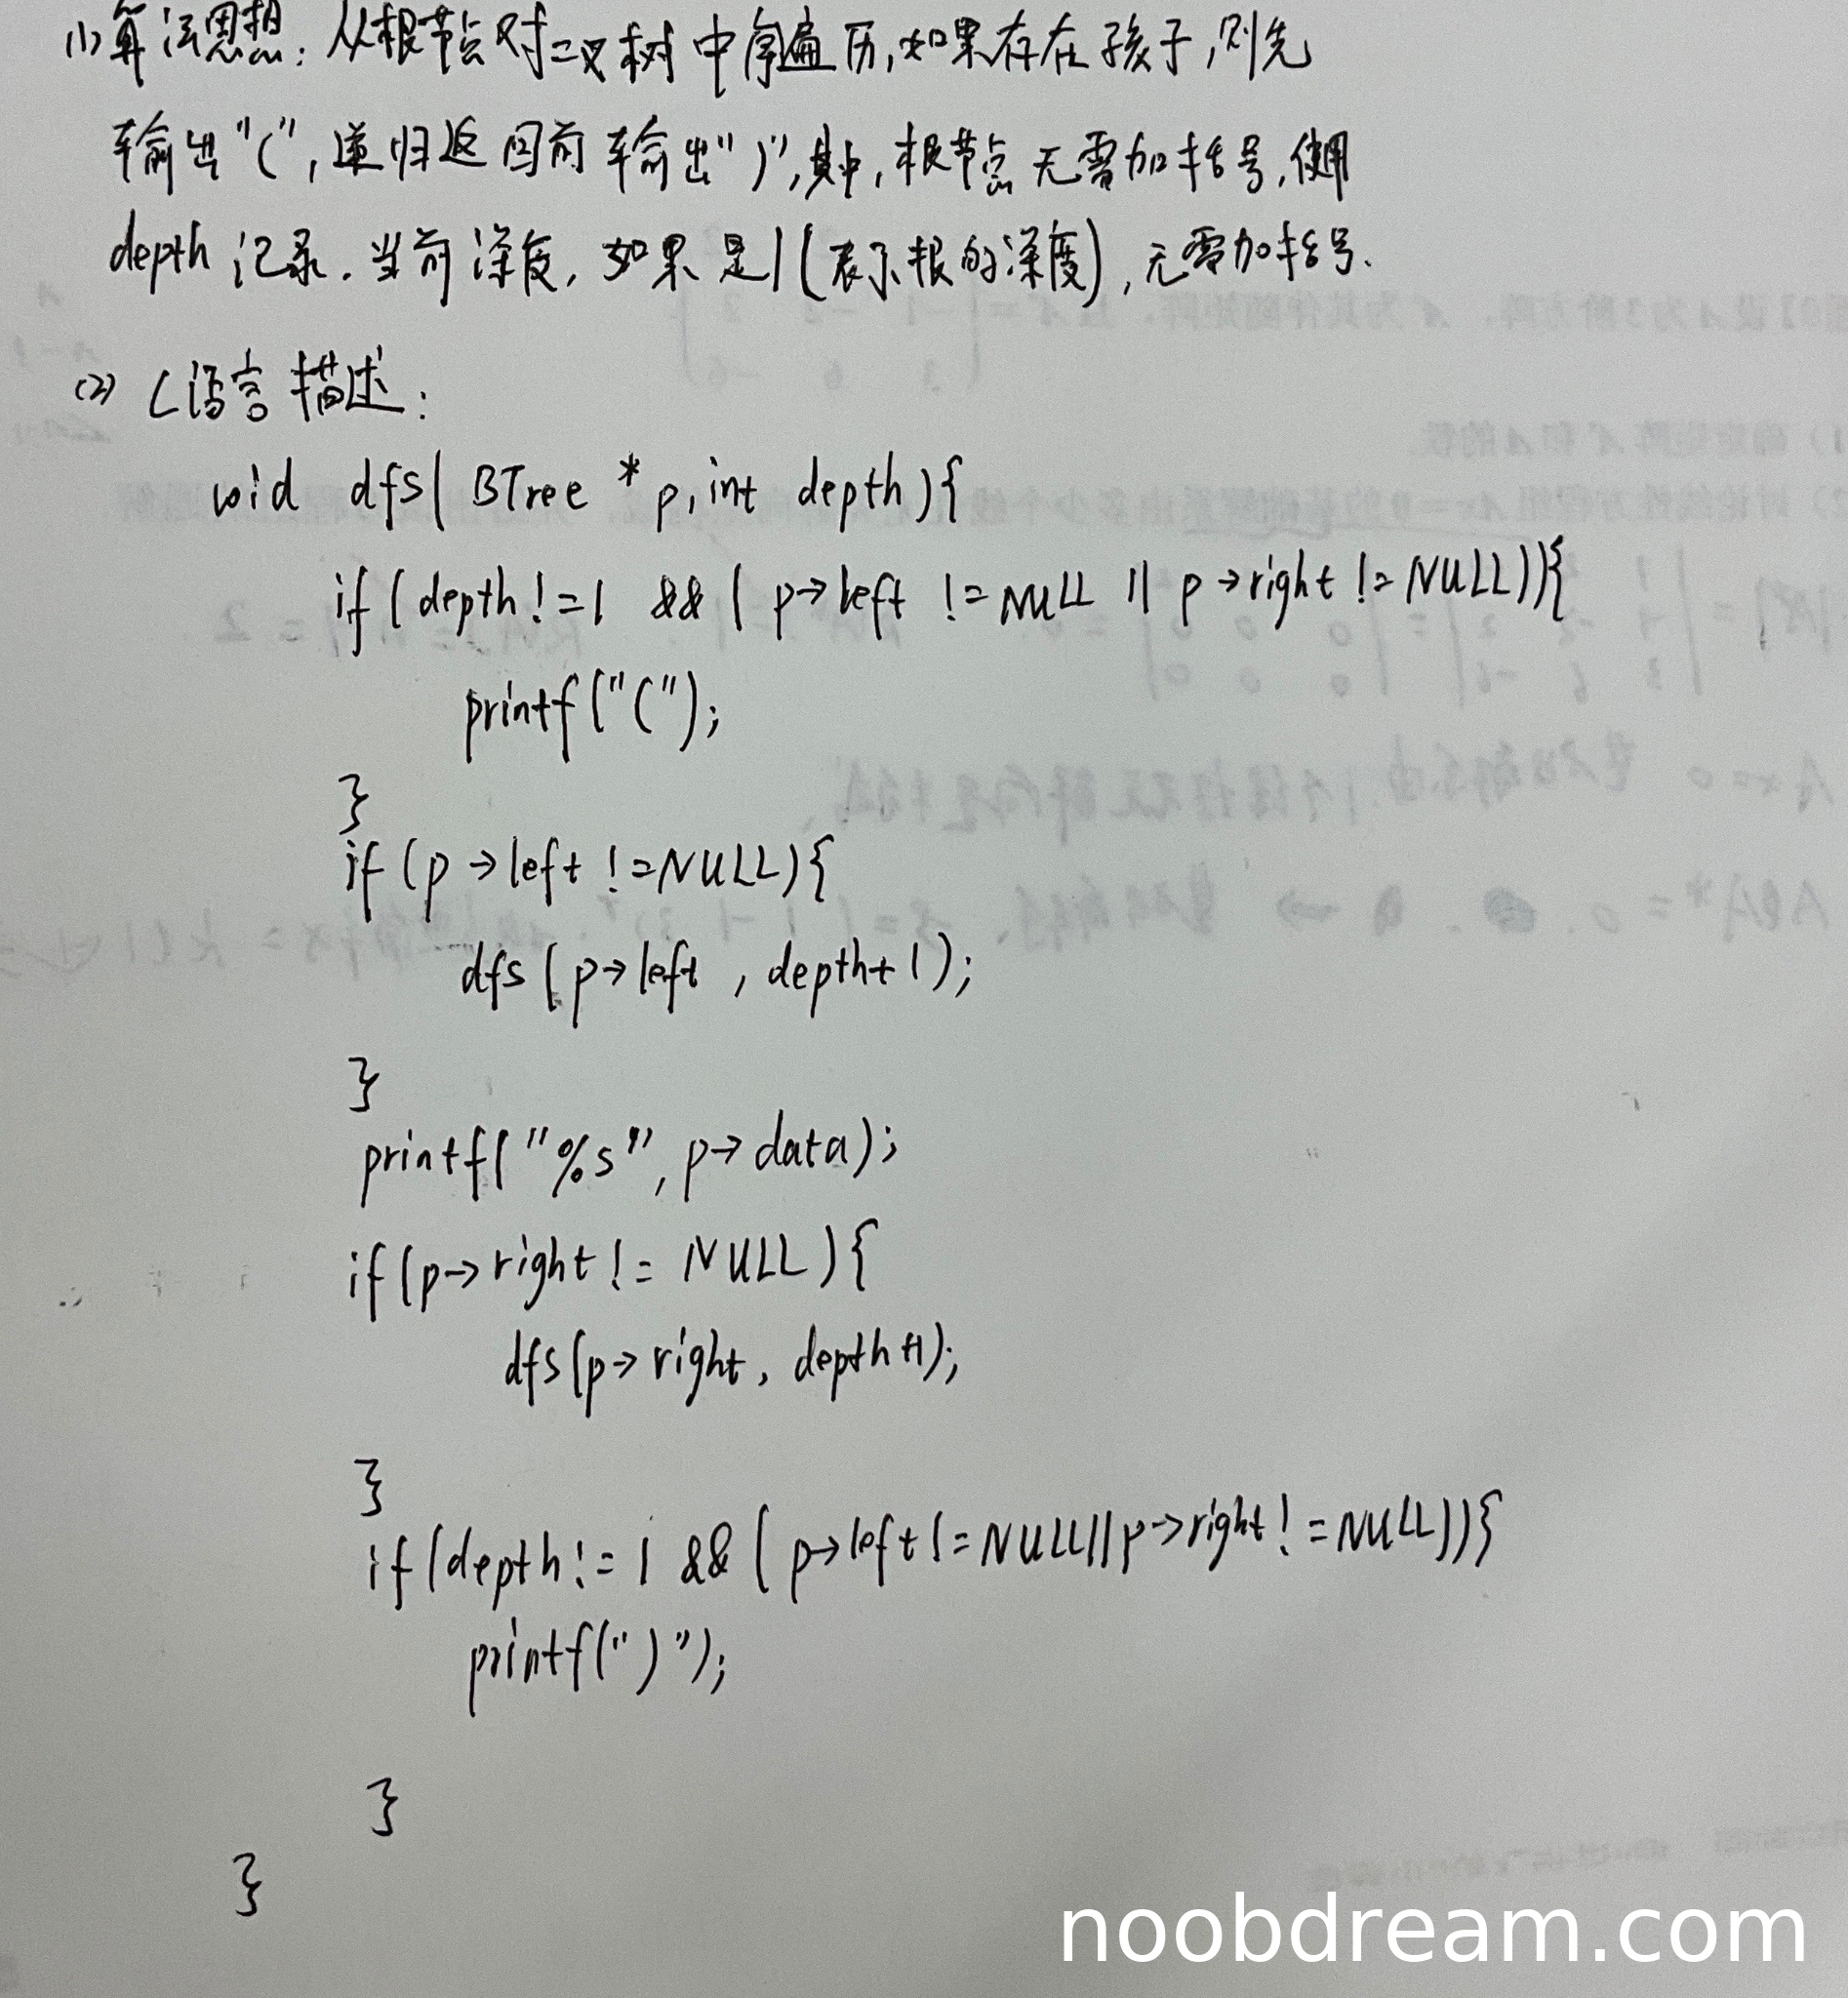 (1) 算法思想: 从根节点对二叉树中序遍历,如果存在孩子,则先
输出"(",递归返回前输出")",其中,根节点无需加括号,使用
depth 记录.当前深度,如果是1(表示根的深度),无需加括号.
(2) C语言描述:
void dfs( BTree * p, int depth){
if ( depth != 1 && ( p→left != NULL || p→right != NULL)){
printf("(");
}
if (p→left != NULL){
dfs (p→left , depth+1);
}
printf("%s", p→data);
if(p→right != NULL){
dfs(p→right, depth+1);
}
if(depth != 1 && ( p→left != NULL||p→right != NULL)){
printf(")");
}
}
noobdream.com